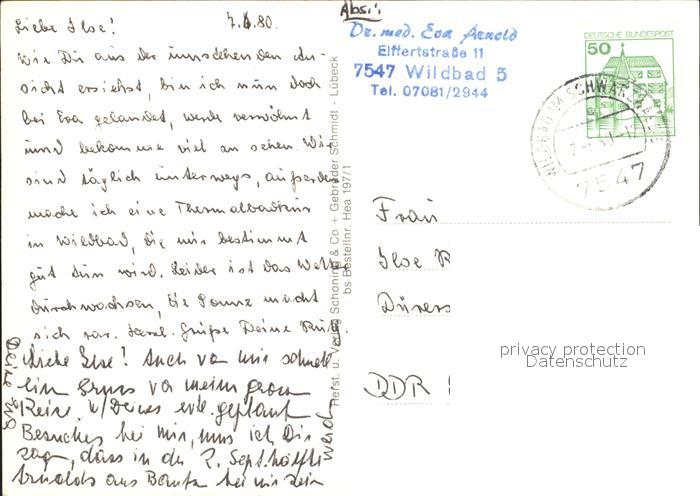 Liebe Ilse! 7.6.80.
Wie Du aus der umstehenden An-
sicht ersiehst, bin ich nun doch
bei Eva gelandet, werde verwöhnt
und bekomme viel zu sehen. Wir
sind täglich unterwegs, außerdem
mache ich eine Thermalbadkur
in Wildbad, die mir bestimmt
gut tun wird. Leider ist das Wetter
durchwachsen, die Sonne macht
sich rar. Herzl. Grüße Deine
Liebe Ilse! Auch von mir schnell
ein Gruss vor meiner
Reise. Deines evtl. geplanten
Besuches bei mir, muss ich Dir
sagen, dass in der 2. Septhälfte
Arnolds aus bei mir sein
werden
Deine Eva
Abs.:
Dr. med. Eva Arnold
Eiffertstraße 11
7547 Wildbad 5
Tel. 07081/2944
DEUTSCHE BUNDESPOST
50
WILDBAD IM SCHWARZWALD
7547
Herst. u. Verlag Schöning & Co + Gebrüder Schmidt - Lübeck
bs Bestellnr. Hea 197/1
Frau
Ilse
Dürers
DDR
privacy protection
Datenschutz